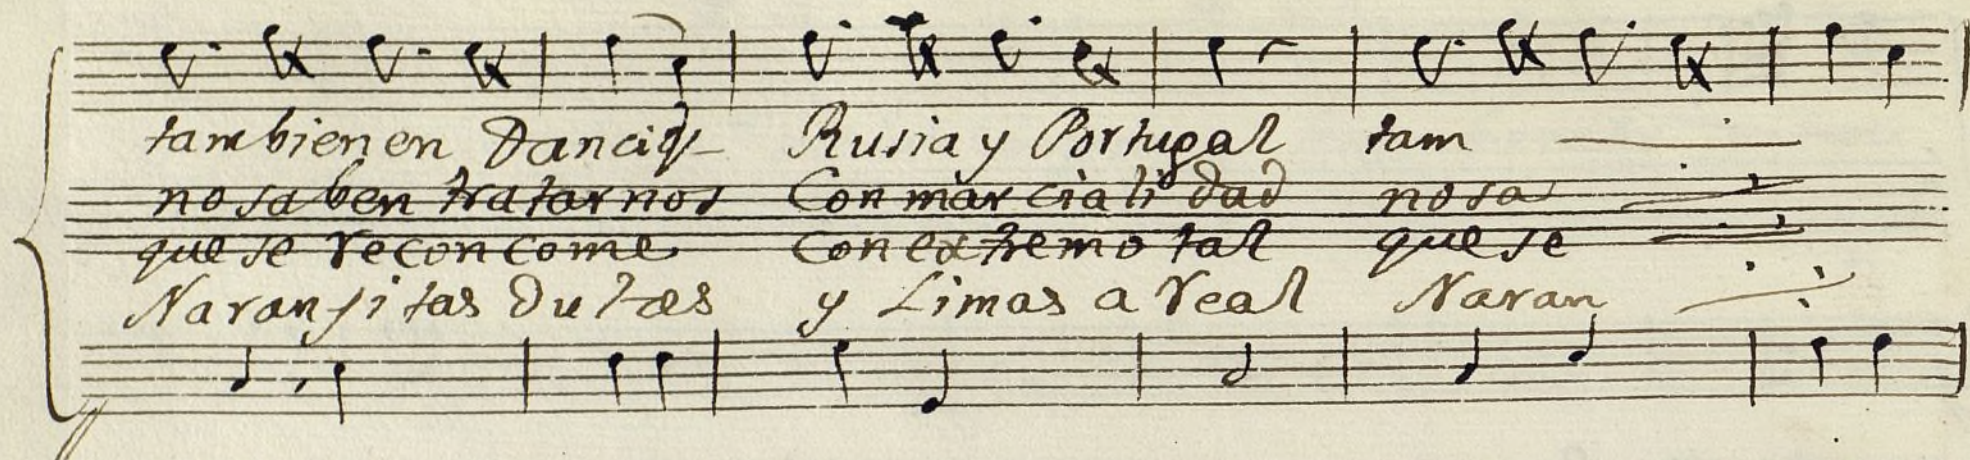 tambien en Danciq Rusia y Portugal tam
no saben tratarnos Con marcialidad no sa
que se reconcome con extremo tal que se
Naranjitas dulzes y Limas a real Naran